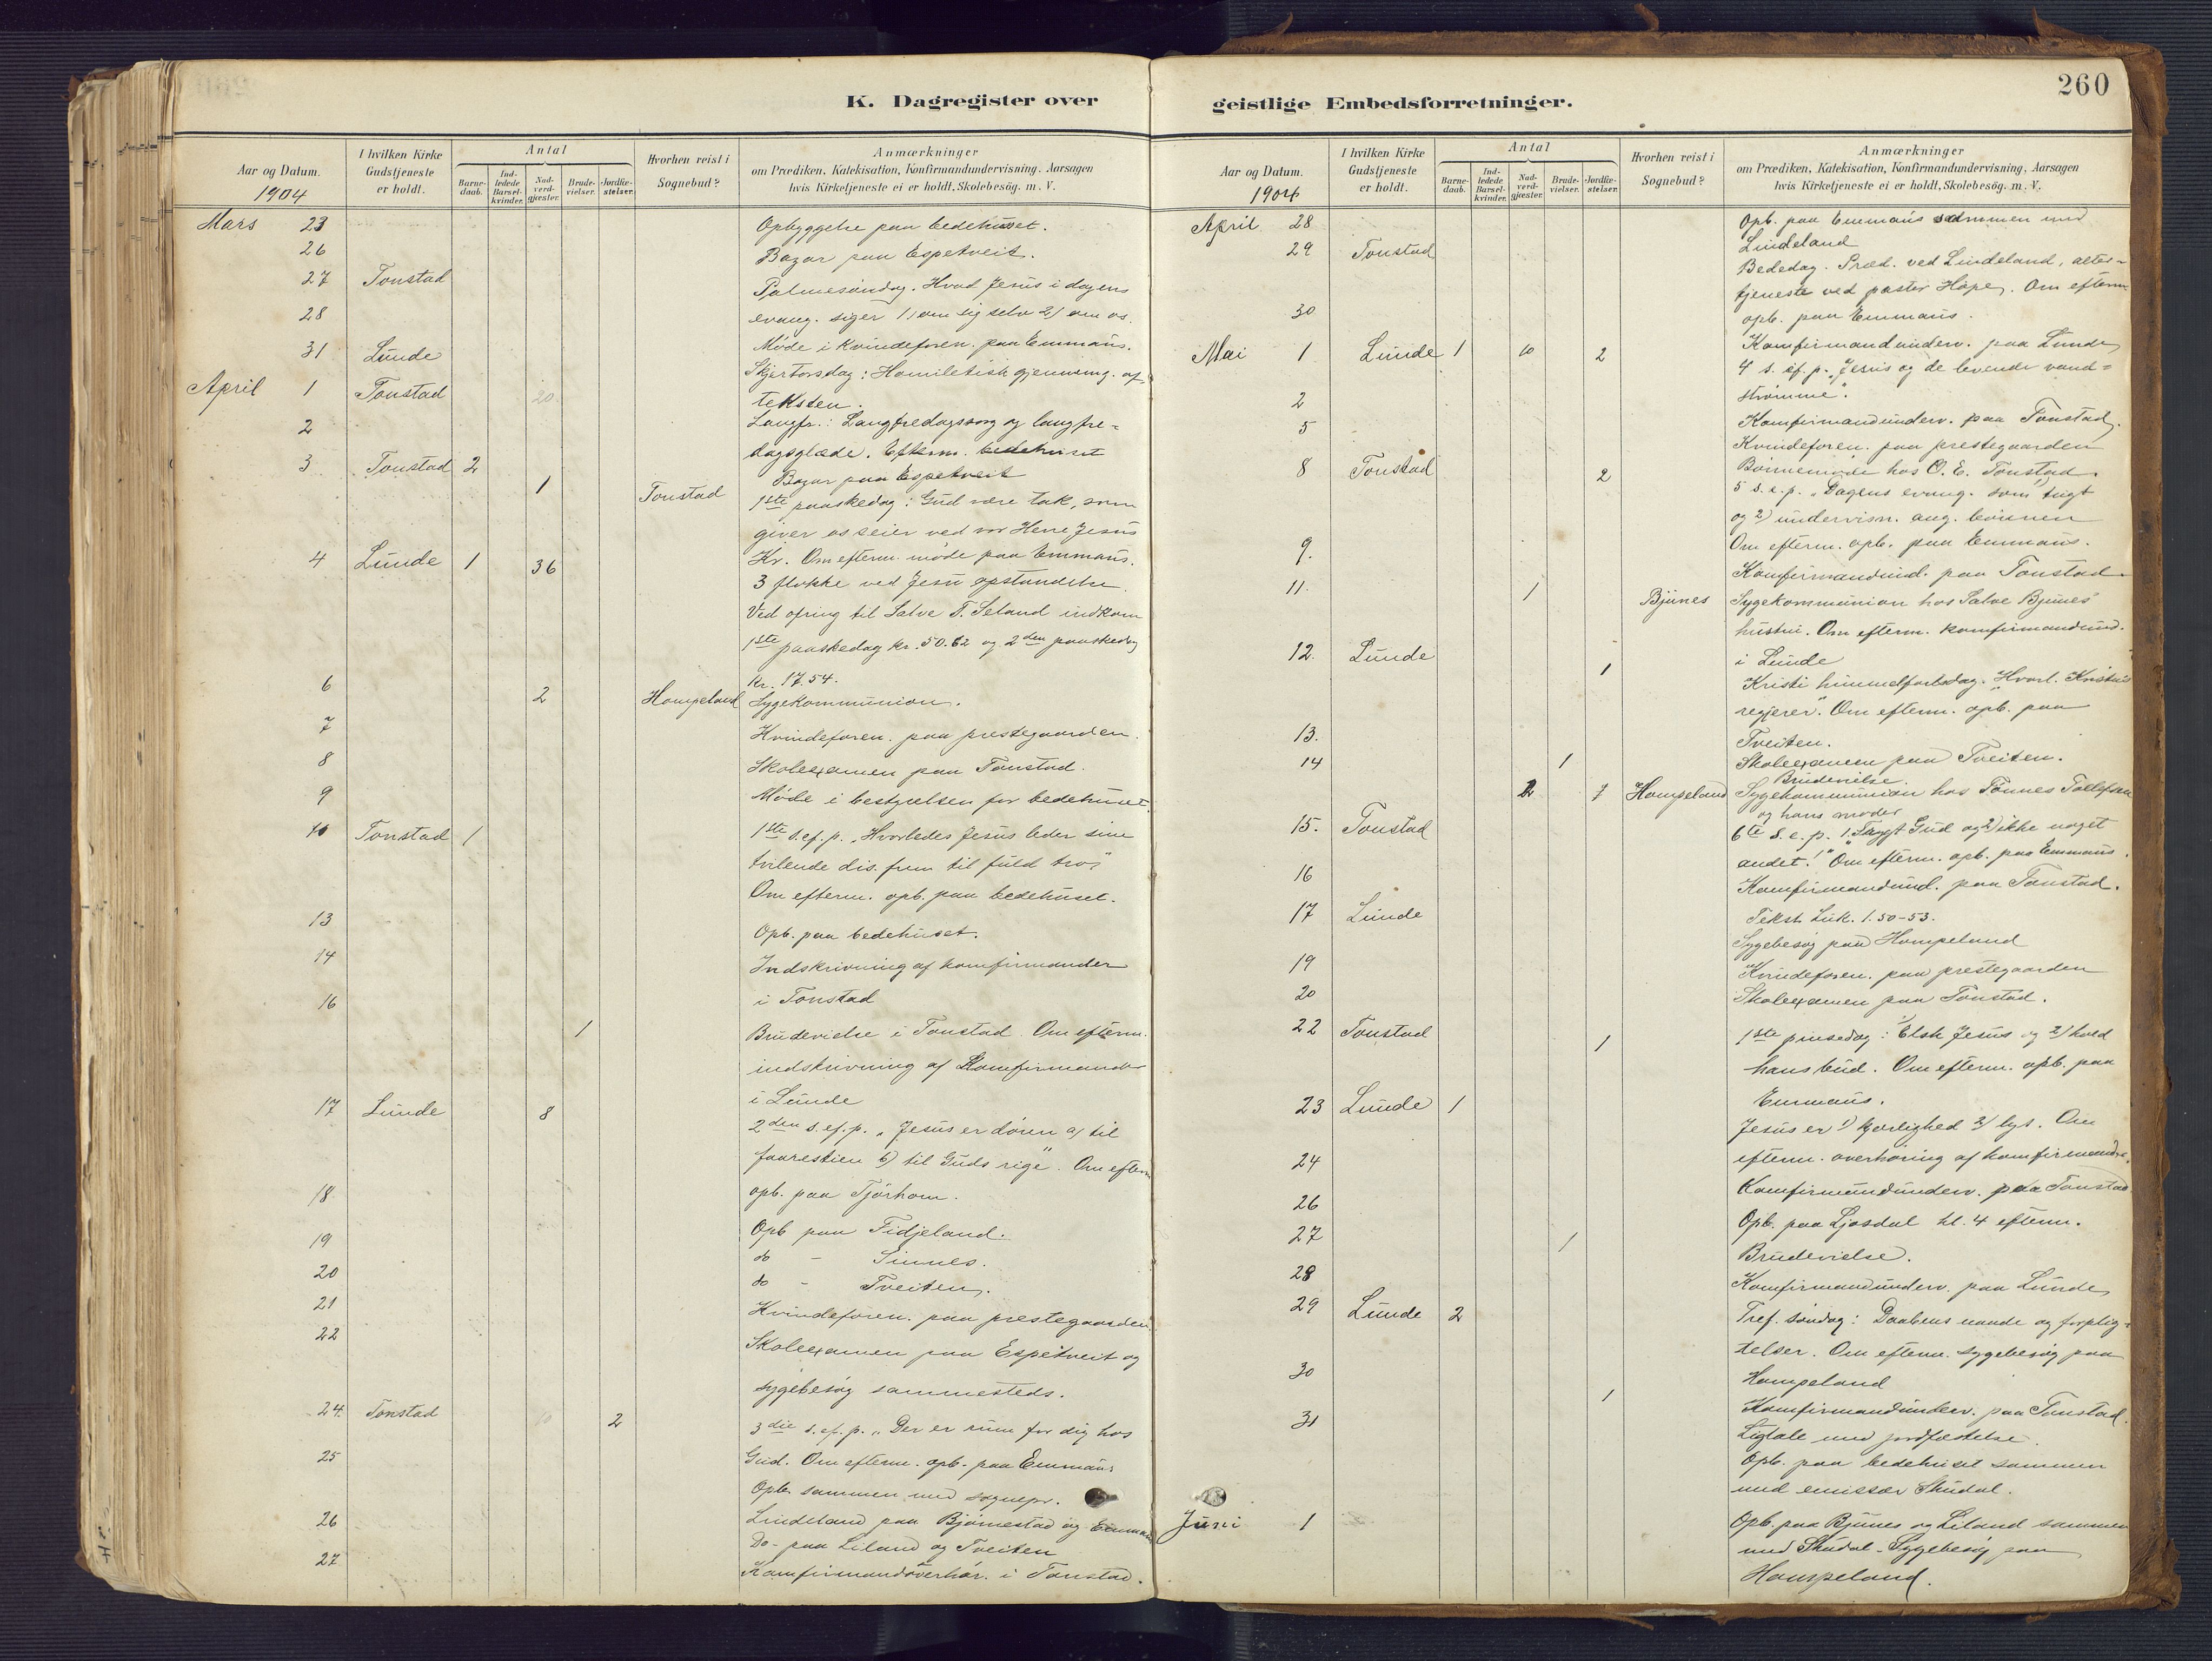 260
K. Dagregister over
Aar og Datum.
1904
I hvilken Kirke
Gudstjeneste
er holdt.
Antal
Barne-
daab.
Ind-
ledede
Barsel-
kvinder.
Nad-
verd-
gjæster.
Brude-
vielser.
Jordfæ-
stelser.
Hvorhen reist i
Sognebud?
Anmærkninger
om Prædiken, Katekisation, Konfirmandundervisning, Aarsagen
hvis Kirketjeneste ei er holdt, Skolebesøg. m. V.
Mars 23 Opbyggelse paa bedehuset.
26 Bazar paa Espetveit.
27 Tonstad Palmesøndag. Hvad Jesus i dagens
evang. siger 1) om sig selv 2) om os.
28 Møde i kvindeforen. paa Emmaus.
31 Lunde Skjertorsdag: Homiletisk gjennemg. af
teksten.
April 1 Tonstad 20 Langfr.: Langfredagssorg og langfre-
dagsglæde. Efterm. bedehuset
2 Bazar paa Espetveit
3 Tonstad 2 1 Tonstad 1ste paaskedag: Gud være tak, som
giver os seier ved vor Herre Jesus
Kr. Om efterm. møde paa Emmaus.
4 Lunde 1 36 3 flokke ved Jesu opstandelse.
Ved ofring til Salve T. Seland indkom
1ste paaskedag kr. 50.62 og 2den paaskedag
Kr. 17.54.
6 2 Hompeland Sygekommunion.
7 Kvindeforen. paa prestegaarden.
8 Skoleexamen paa Tonstad.
9 Møde i bestyrelsen for bedehuset.
10 Tonstad 1 1ste s. ef. p. „Hvorledes Jesus leder sine
tvilende dis. frem til fuld tro"
Om efterm. opb. paa bedehuset.
13 Opb. paa bedehuset.
14 Indskrivning af konfirmander
i Tonstad
16 1 Brudevielse i Tonstad. Om efterm.
indskrivning af Konfirmander
i Lunde
17 Lunde 8 2den s. ef. p. „Jesus er døren a) til
faarestien b) til Guds rige". Om efterm
opb. paa Tjørhom.
18 Opb paa Fidjeland.
19 do - Sinnes.
20 do - Tveiten.
21 Kvindeforen. paa prestegaarden
22 Skoleexamen paa Espetveit og
sygebesøg sammesteds.
24. Tonstad 10 2 3die s. ef. p. „Der er rum for dig hos
Gud. Om efterm. opb. paa Emmaus
25 Opb. sammen med sognepr.
Lindeland paa Bjørnestad og Emmaus
26 Do - paa Liland og Tveiten
27 Konfirmandoverhør. i Tonstad.
geistlige Embedsforretninger.
Aar og Datum.
1904
I hvilken Kirke
Gudstjeneste
er holdt.
Antal
Barne-
daab.
Ind-
ledede
Barsel-
kvinder.
Nad-
verd-
gjæster.
Brude-
vielser.
Jordfæ-
stelser.
Hvorhen reist i
Sognebud?
Anmærkninger
om Prædiken, Katekisation, Konfirmandundervisning, Aarsagen
hvis Kirketjeneste ei er holdt, Skolebesøg. m. V.
April 28 Opb. paa Emmaus sammen med
Lindeland
29 Tonstad Bededag. Præd. ved Lindeland, alter-
tjeneste ved pastor Hope. Om efterm
opb. paa Emmaus.
30 Konfirmandunderv. paa Lunde
Mai 1 Lunde 1 10 2 4 s. ef. p. „Jesus og de levende vand-
strømme".
2 Konfirmandunderv. paa Tonstad.
5 Kvindeforen. paa prestegaarden
Børnemøde hos O. E. Tonstad.
8 Tonstad 2 5 s. e. p. „Dagens evang. som tugt
og 2) undervisn. ang. bønnen
Om efterm. opb. paa Emmaus.
9. Konfirmandund. paa Tonstad.
11. 1 Bjunes Sygekommunion hos Salve Bjunes'
hustru. Om efterm. konfirmandund.
i Lunde
12. Lunde 1 Kristi himmelfartsdag. „Hvorl. Kristus
regjerer". Om efterm. opb. paa
Tveiten.
13. Skoleexamen paa Tveiten.
14 1 Brudevielse.
2 7 Hompeland Sygekommunion hos Tønnes Tollefsen
og hans moder
15. Tonstad 6te s. e. p. 1. „Frygt Gud og 2) ikke noget
andet!" Om efterm. opb. paa Emmaus.
16 Konfirmandund. paa Tonstad.
17 Lunde Tekst Luk. 1. 50-53.
Sygebesøg paa Hompeland
19 Kvindeforen. paa prestegaarden
20 Skoleexamen paa Tonstad.
22 Tonstad 1 1ste pinsedag: 1) Elsk Jesus og 2) hold
hans bud. Om efterm. opb. paa
Emmaus.
23 Lunde 1 Jesus er 1) kjærlighed 2) lys. Om
efterm. overhøring af konfirmander.
24 Konfirmandunderv. paa Tonstad
26 Opb. paa Ljosdal kl. 4 efterm.
27 1 Brudevielse.
28 Konfirmandunderv. paa Lunde
29 Lunde 2 Tref. søndag: Daabens naade og forplig-
telser. Om efterm. sygebesøg paa
Hompeland
30 Konfirmandunderv. paa Tonstad.
1 Ligtale med jordfæstelse.
31 Opb. paa bedehuset sammen
med emissær Skudal.
Juni 1 Opb. paa Bjunes og Liland sammen
med Skudal. Sygebesøg paa
Hompeland.